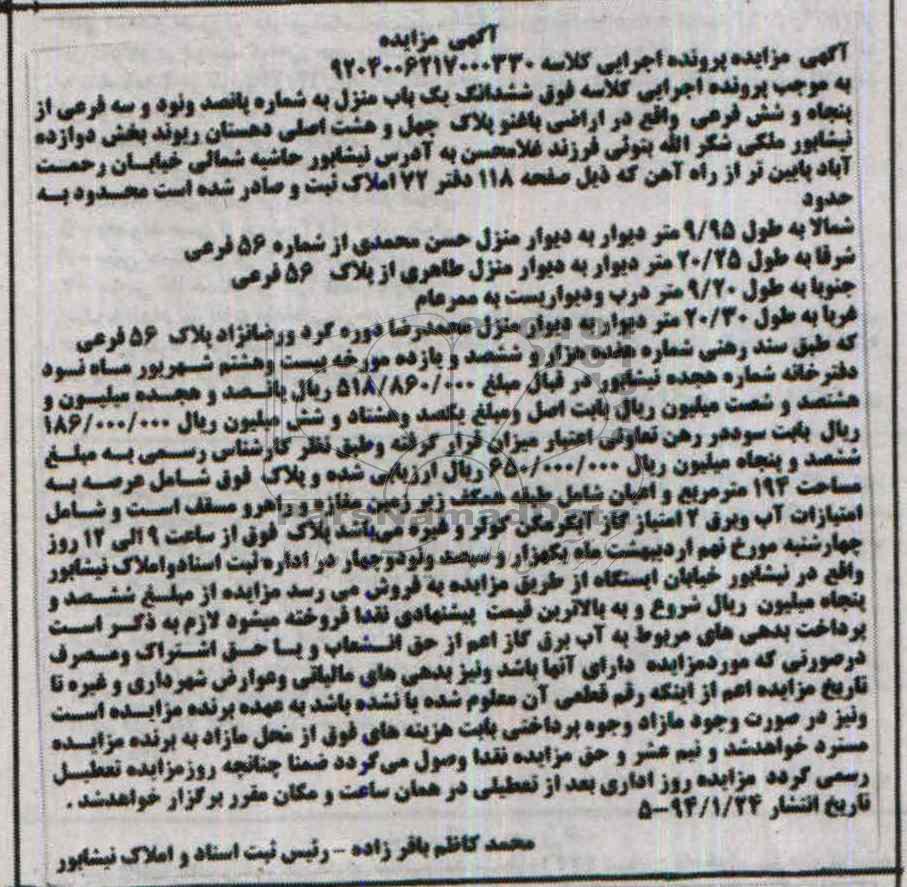 آگهی مزایده
آگهی مزایده پرونده اجرایی کلاسه ۹۲۰۴۰۰۶۲۱۷۰۰۰۳۳۰
به موجب پرونده اجرایی کلاسه فوق ششدانگ یک باب منزل به شماره پانصد ونود و سه فرعی از
پنجاه و شش فرعی واقع در اراضی باغنو پلاک چهل و هشت اصلی دهستان ریوند بخش دوازده
نیشابور ملکی شکر الله بتوئی فرزند غلامحسن به آدرس نیشابور حاشیه شمالی خیابان رحمت
آباد پایین تر از راه آهن که ذیل صفحه ۱۱۸ دفتر ۷۲ املاک ثبت و صادر شده است محدود به
حدود
شمالا به طول ۹/۹۵ متر دیوار به دیوار منزل حسن محمدی از شماره ۵۶ فرعی
شرقا به طول ۲۰/۲۵ متر دیوار به دیوار منزل طاهری از پلاک ۵۶ فرعی
جنوبا به طول ۹/۲۰ متر درب ودیواریست به ممرعام
غربا به طول ۲۰/۳۰ متر دیوار به دیوار منزل محمدرضا دوره گرد ورضانژاد پلاک ۵۶ فرعی
که طبق سند رهنی شماره هفده هزار و ششصد و یازده مورخه بیست وهشتم شهریور ماه نود
دفترخانه شماره هجده نیشابور در قبال مبلغ ۵۱۸/۸۶۰/۰۰۰ ریال پانصد و هجده میلیون و
هشتصد و شصت میلیون ریال بابت اصل ومبلغ یکصد وهشتاد و شش میلیون ریال ۱۸۶/۰۰۰/۰۰۰
ریال بابت سوددر رهن تعاونی اعتبار میزان قرار گرفته وطبق نظر کارشناس رسمی به مبلغ
ششصد و پنجاه میلیون ریال ۶۵۰/۰۰۰/۰۰۰ ریال ارزیابی شده و پلاک فوق شامل عرصه به
مساحت ۱۹۴ مترمربع و اعیان شامل طبقه همکف زیرزمین مغازه وراهرو مسقف است و شامل
امتیازات آب وبرق ۲ امتیاز گاز آبگرمکن کولر و غیره می‌باشد پلاک فوق از ساعت ۹ الی ۱۲ روز
چهارشنبه مورخ نهم اردیبهشت ماه یکهزار و سیصد ونودوچهار در اداره ثبت اسنادواملاک نیشابور
واقع در نیشابور خیابان ایستگاه از طریق مزایده به فروش می رسد مزایده از مبلغ ششصد و
پنجاه میلیون ریال شروع و به بالاترین قیمت پیشنهادی نقدا فروخته میشود لازم به ذکر است
پرداخت بدهی های مربوط به آب برق گاز اعم از حق انشعاب و یا حق اشتراک ومصرف
درصورتی که موردمزایده دارای آنها باشد ونیز بدهی های مالیاتی وعوارض شهرداری و غیره تا
تاریخ مزایده اعم از اینکه رقم قطعی آن معلوم شده یا نشده باشد به عهده برنده مزایده است
ونیز در صورت وجود مازاد وجوه پرداختی بابت هزینه های فوق از محل مازاد به برنده مزایده
مسترد خواهدشد و نیم عشر و حق مزایده نقدا وصول می‌گردد ضمنا چنانچه روزمزایده تعطیل
رسمی گردد مزایده روز اداری بعد از تعطیلی در همان ساعت و مکان مقرر برگزار خواهدشد .
تاریخ انتشار ۹۴/۱/۲۴-۵
محمد کاظم باقر زاده - رئیس ثبت اسناد و املاک نیشابور
ParsNamadData